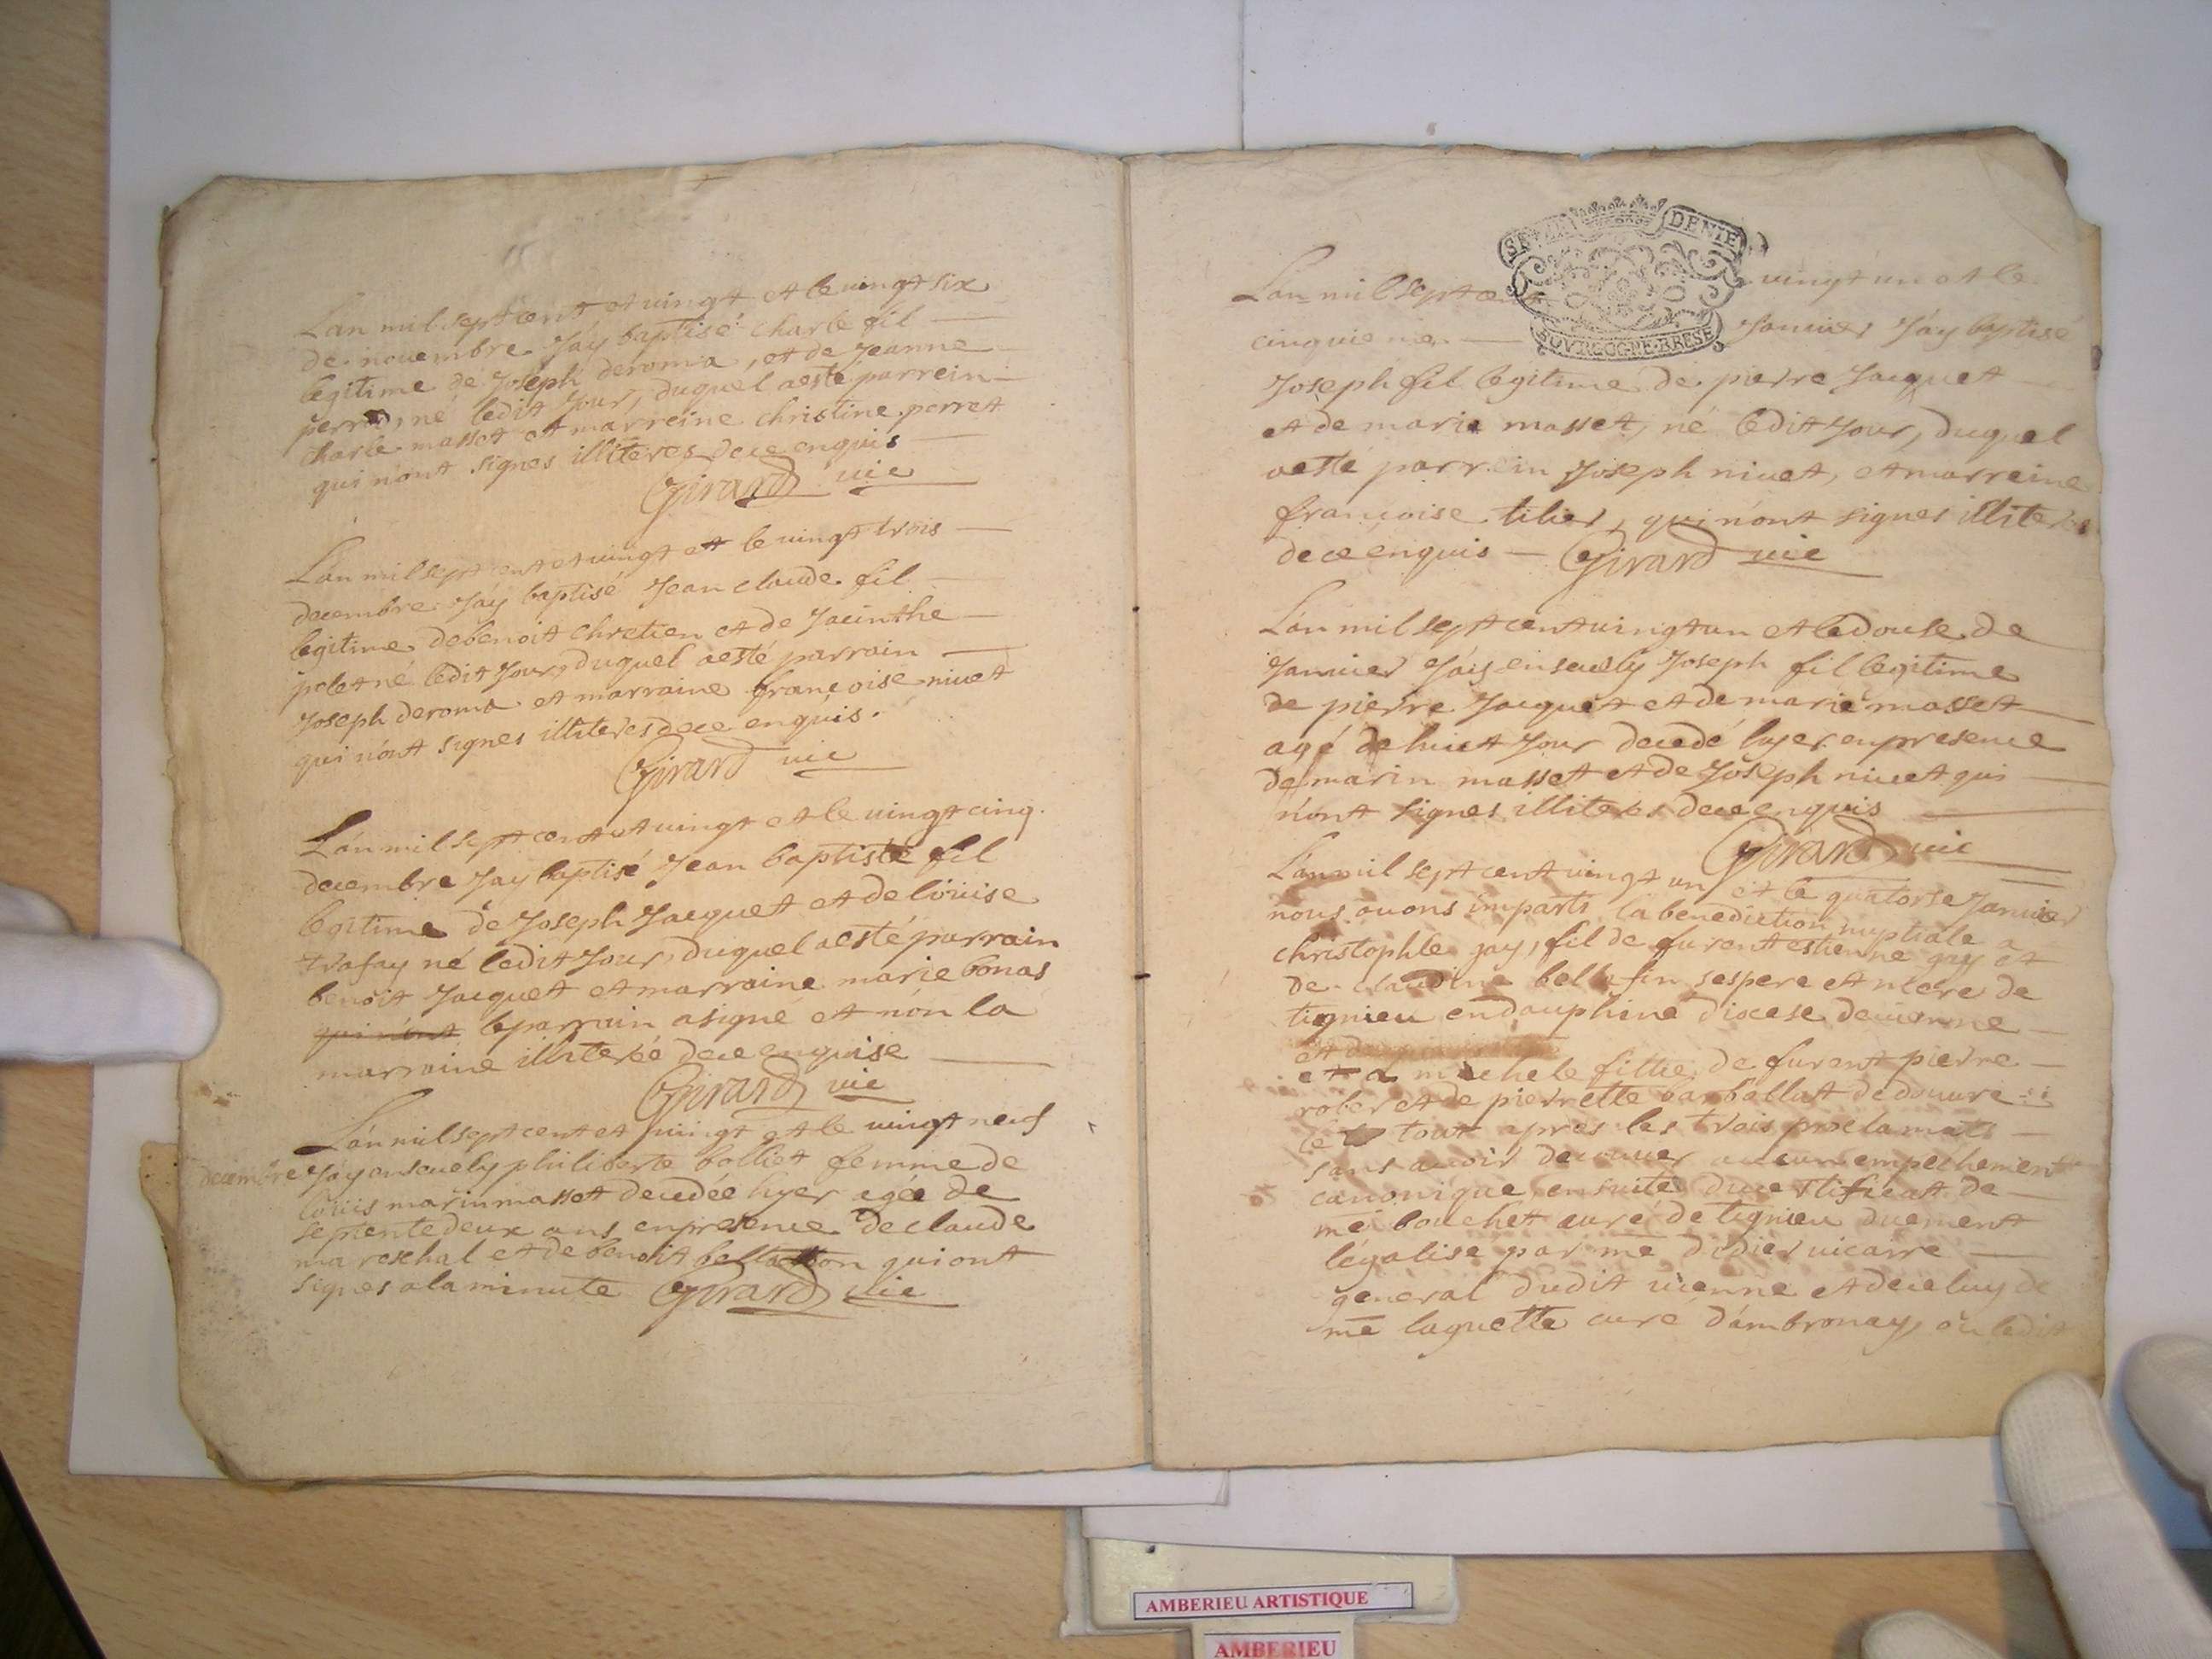 Lan mil sept cent et vingt et le vingt six
de novembre Jáy baptisé charle fil
legitime de Joseph deroma, et de Jeanne
né ledit Jour, duquel aesté parrein
charle masset et marreine christine perret
qui n'ont signes illiteres dece enquis
Girard vic
Lán mil sept cent et vingt et le vingt trois
decembre Jáy baptisé Jean claude fil
legitime debenoit Chretien et de Jacinthe
polet né ledit Jour, duquel aesté parrain
Joseph deroma et marraine francoise nivet
qui n'ont signes illiteres dece enquis.
Girard vic
Lán mil sept cent et vingt et le vingt cinq.
decembre Jay baptisé Jean baptiste fil
legitime de Joseph Jacquet et de loüise
trafay né ledit Jour, duquel aesté parrain
benoit Jacquet et marraine marie bonas
qui n'ont le parrain asigné et nón la
marraine illiterée dece enquise
Girard vic
Lán mil sept cent et vingt et le vingt neuf
decembre Jáy ensevely philiberte bolliet femme de
loüis marin masset decedée hyer agée de
septente deux ans enpresence de claude
mareschal et de benoit qui ont
signes a la minute Girard vic
SE DENIE
BOVRGOGNE-BRESE
Lan mil sept cent vingt un et le
cinquieme Janvier Jáy baptisé
Joseph fil legitime de pierre Jacquet
et de marie masset, né ledit Jour, duquel
aesté parrein Joseph nivet, et marreine
françoise tilier, qui n'ont signes illiteres
dece enquis Girard vic
Lán mil sept cent vingt un et le douse de
Janvier Jáy ensevely Joseph fil legitime
de pierre Jacquet et de marie masset
agé de huict Jour decedé hyer enpresence
de marin masset et de Joseph nivet qui
n'ont signes illiteres dece enquis
Girard vic
Lán mil sept cent vingt un et le quatorse Janvier
nous avons imparti la benediction nuptiale a
christophle gay, fil de furent estienne gay et
de claudine bellefin ses pere et mere de
tignieu en dauphiné diocese devienne
et
et a michele fillie de furent pierre
rober et de pierrette barballat de douvre
le tout apres les trois proclamats
sans avoir decouver aucun empechement
canonique, ensuite du certificat de
me bouchet curé de tignieu duement
légalisé par me didier vicaire
general dudit vienne et deceluy de
me laguette curé d'ambronay, ou ledit
AMBERIEU ARTISTIQUE
AMBERIEU